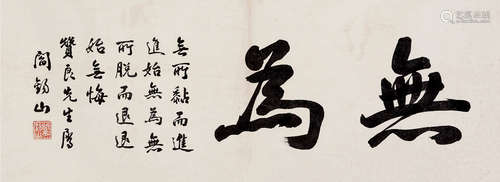 無為
無所黏而進
進始無為無
所脫而退退
始無悔
贊良先生屬
閻錫山